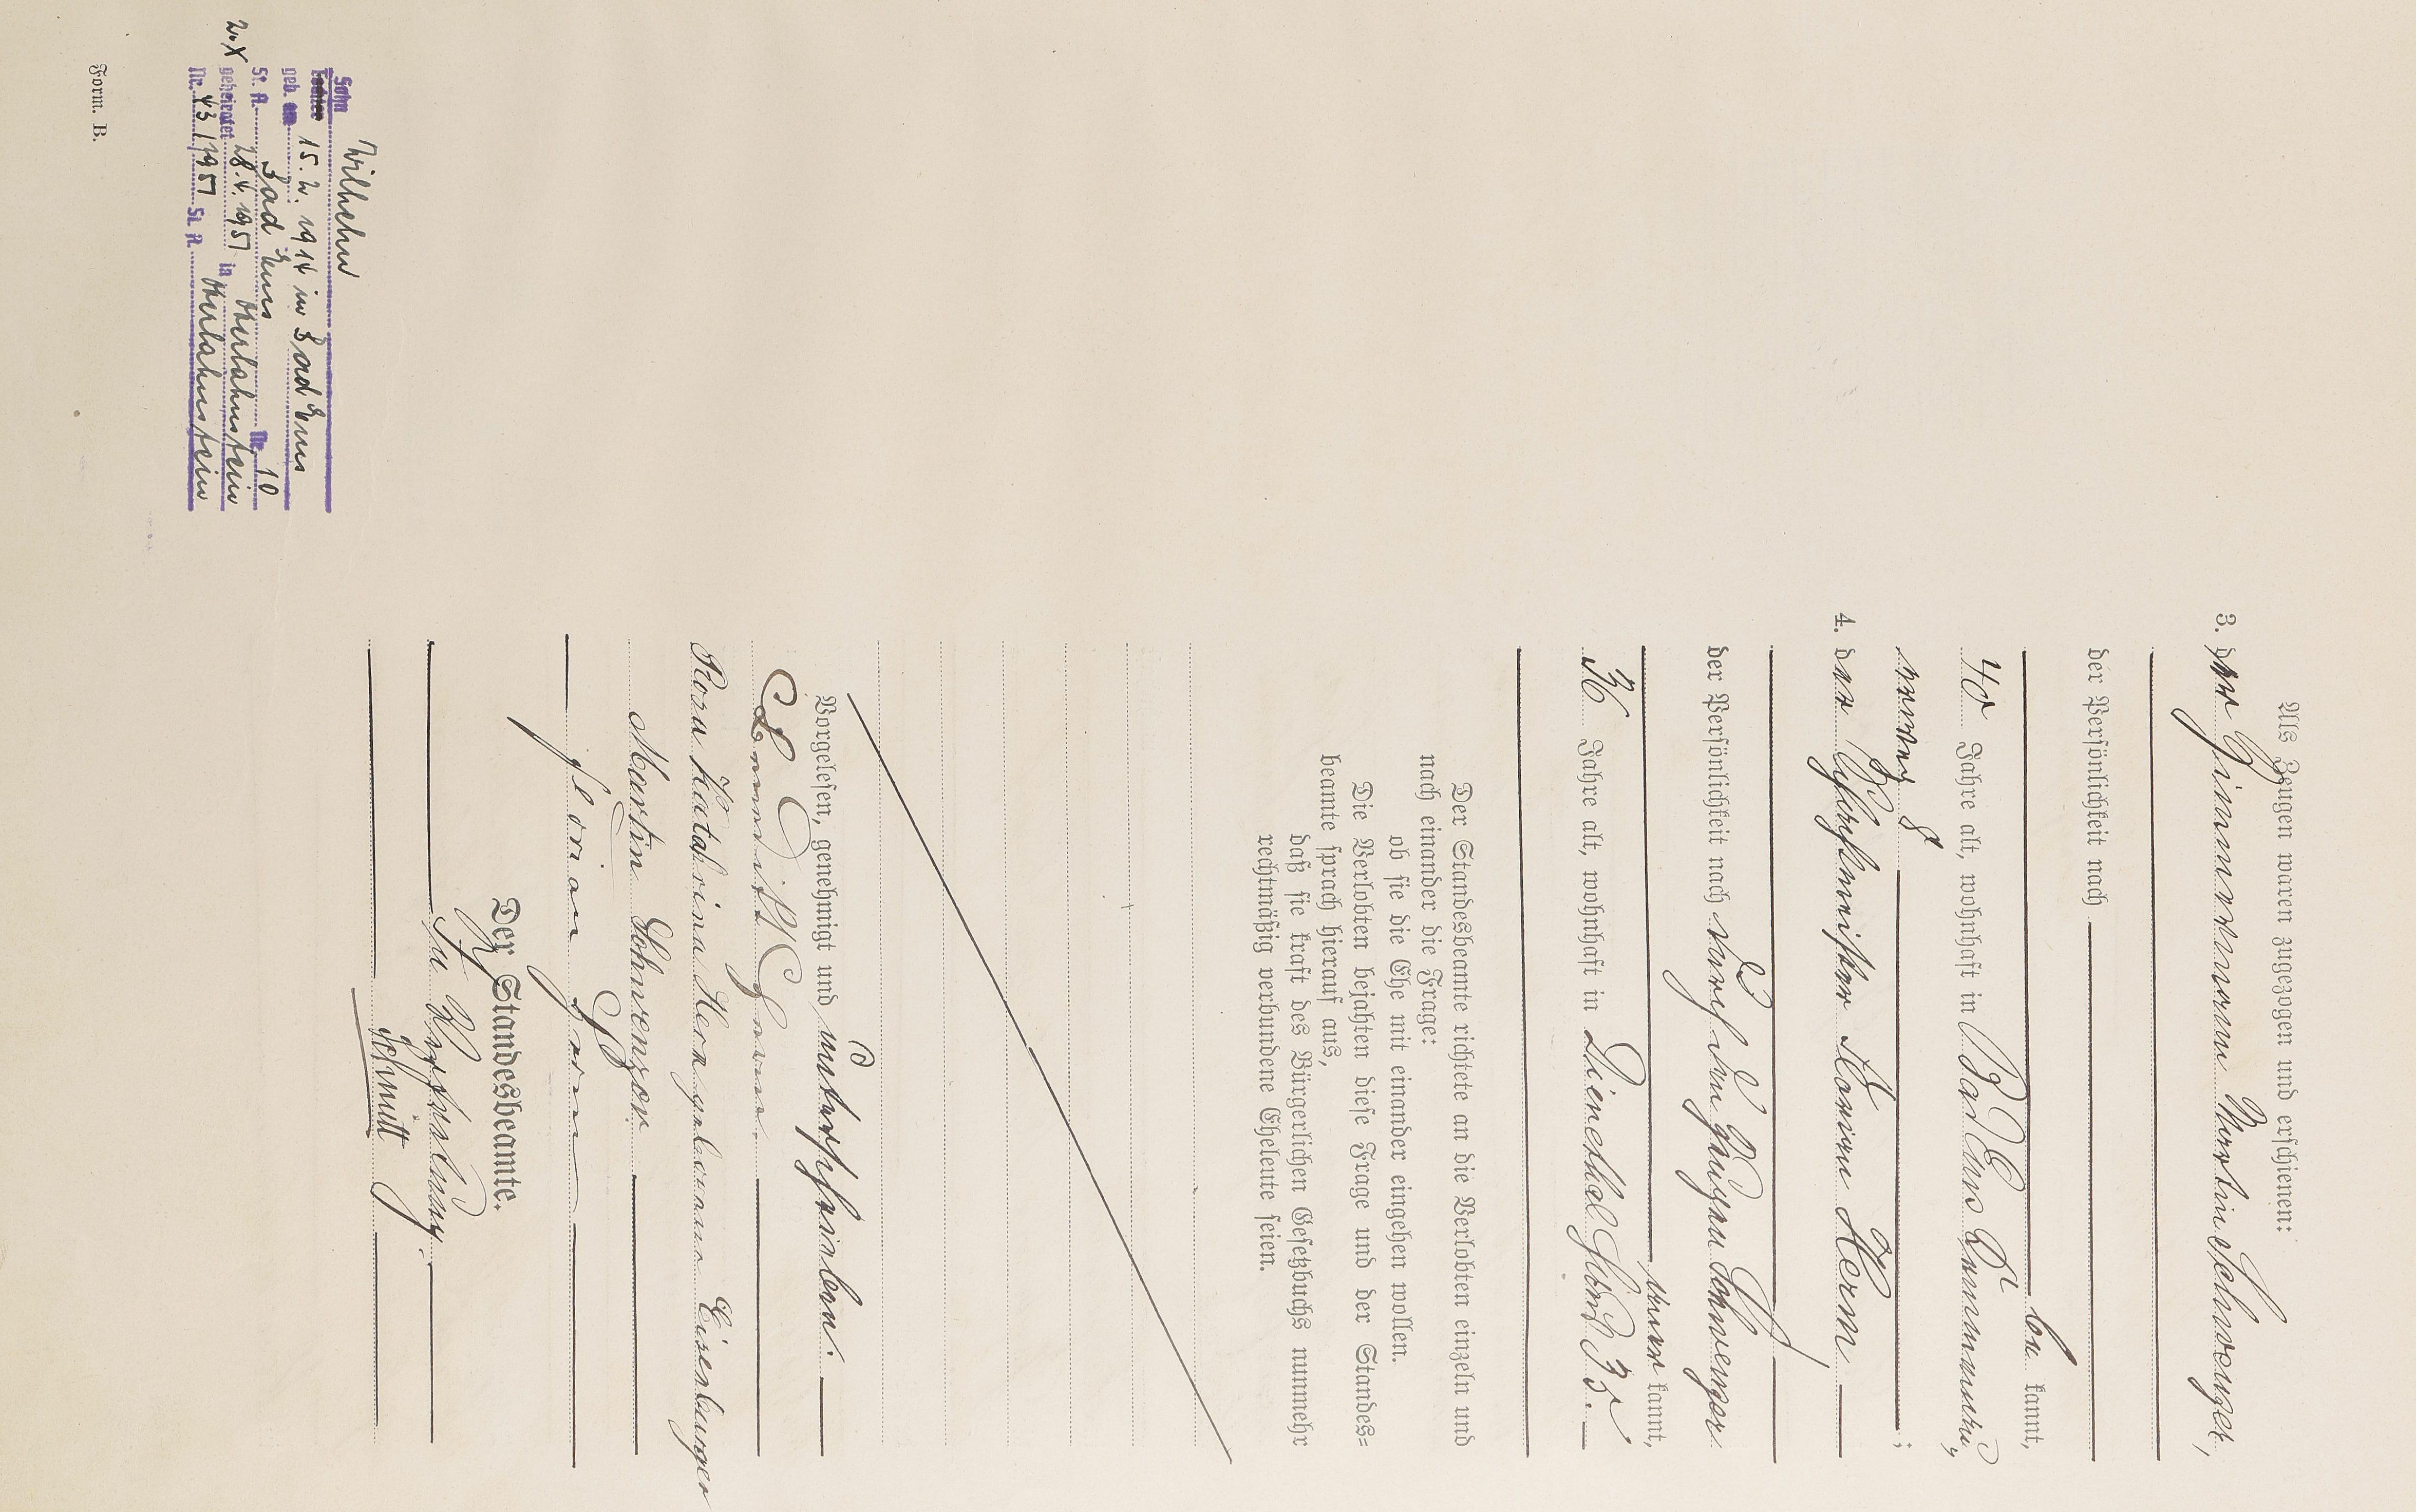 Als Zeugen waren zugezogen und erschienen:
3. der Zimmermann Martin Schwenzer,
der Persönlichkeit nach
be kannt,
40 Jahre alt, wohnhaft in Bad Ems
;
4. der Florian Herm
der Persönlichkeit nach Schwenzer
kannt,
36 Jahre alt, wohnhaft in Dienethal
Der Standesbeamte richtete an die Verlobten einzeln und
nach einander die Frage:
ob sie die Ehe mit einander eingehen wollen.
Die Verlobten bejahten diese Frage und der Standes=
beamte sprach hierauf aus,
daß sie kraft des Bürgerlichen Gesetzbuchs nunmehr
rechtmäßig verbundene Eheleute seien.
Vorgelesen, genehmigt und unterschrieben.
Herm.
Rosa Katharina Herm geborene Eisenburger
Martin Schwenzer
Florian Herm
Der Standesbeamte.
In Vertretung.
Schmitt
Wilhelm
Sohn
Tochter
geb. am 15. 2. 1914 in Bad Ems
St. A. Bad Ems Nr. 10
2. X geheiratet 28. 4. 1951 in Oberlahnstein
Nr. 43/1951 St. A. Oberlahnstein
Form. B.